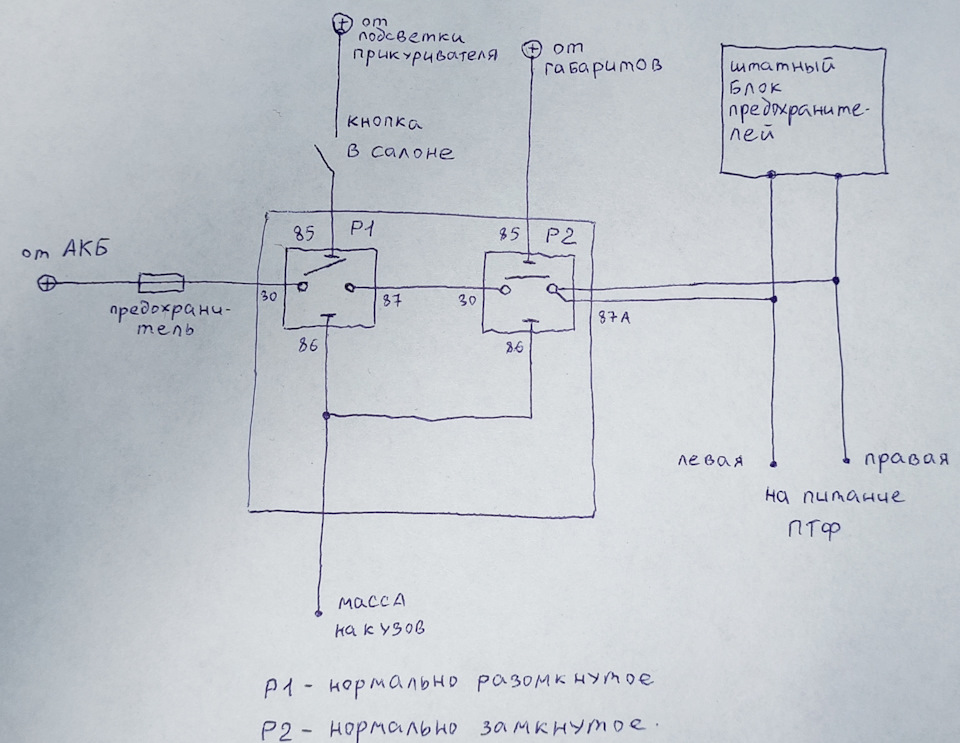 от
подсветки
прикуривателя
от
габаритов
штатный
блок
предохраните-
лей
кнопка
в салоне
85 P1
85 P2
от АКБ
30
87
30
87A
предохрани-
тель
86
86
левая
правая
на питание
ПТФ
масса
на кузов
P1 - нормально разомкнутое
P2 - нормально замкнутое.